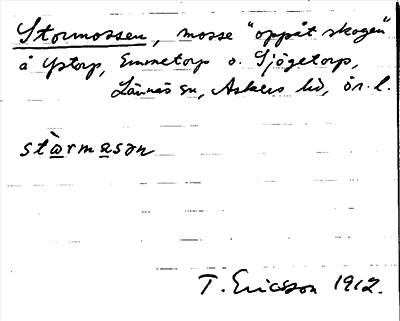 Stormossen, mosse "oppåt skogen"
å Ystorp, Emmetorp o. Sjögetorp,
Lännäs sn, Askers hd, ör. l.
stὼrmasαn
T. Ericsson 1912.